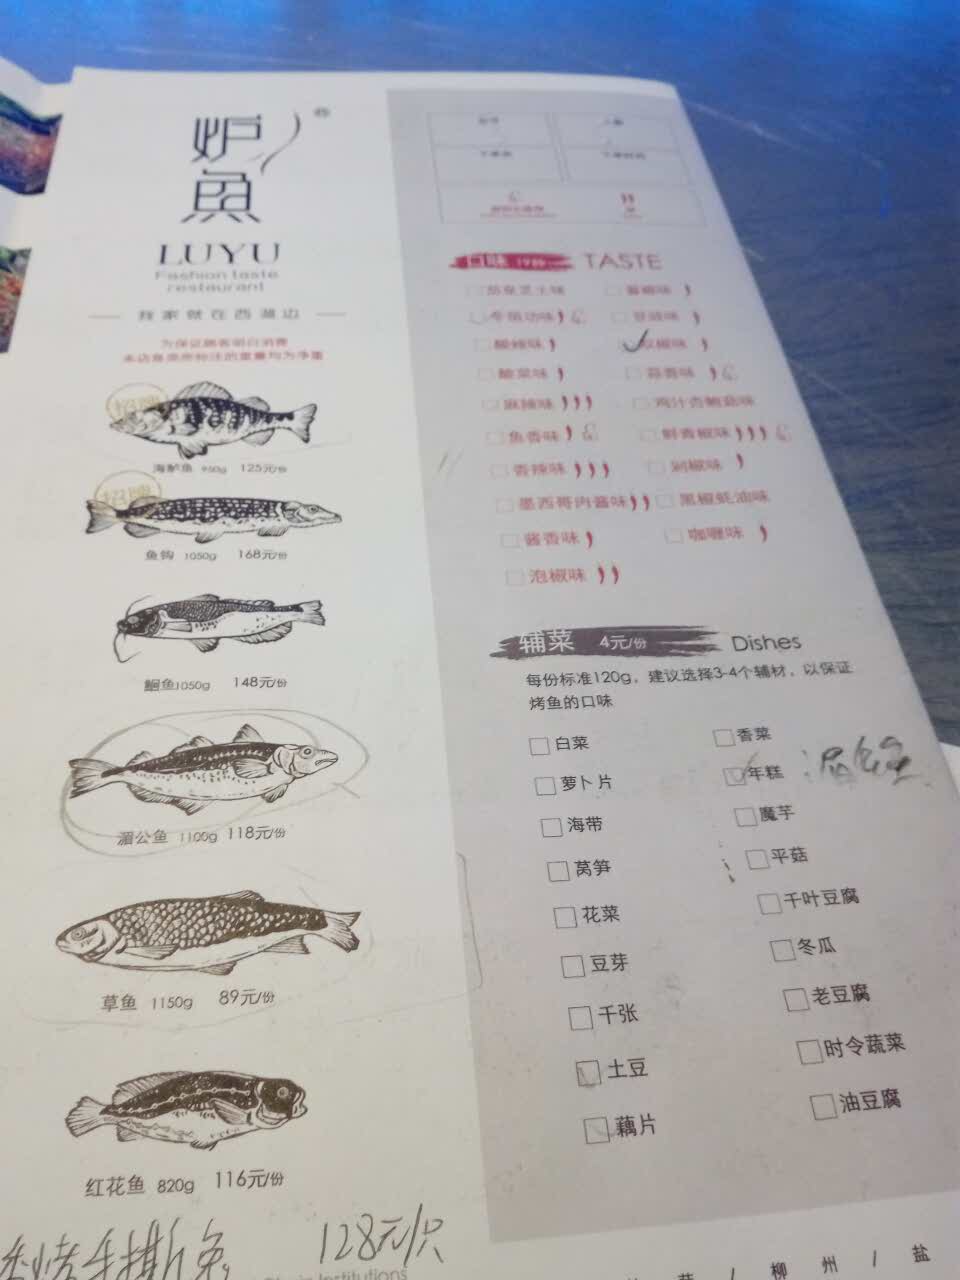 炉
魚
LUYU
Fashion taste
restaurant
我家就在西湖边
为保证顾客明白消费
本店鱼类所标注的重量均为净重
招牌
海鲈鱼 950g 125元/份
招牌
鱼钩 1050g 168元/份
鮰鱼1050g 148元/份
湄公鱼 1100g 118元/份
草鱼 1150g 89元/份
红花鱼 820g 116元/份
香烤手撕兔 128元/只
口味 TASTE
酸辣味
酸菜味 蒜香味
麻辣味 鸡汁杏鲍菇味
鱼香味 鲜青椒味
香辣味 剁椒味
墨西哥肉酱味 黑椒蚝油味
酱香味 咖喱味
泡椒味
辅菜 4元/份 Dishes
每份标准120g，建议选择3-4个辅材，以保证
烤鱼的口味
白菜 香菜
萝卜片 年糕
海带 魔芋
莴笋 平菇
花菜 千叶豆腐
豆芽 冬瓜
千张 老豆腐
土豆 时令蔬菜
藕片 油豆腐
Institutions
/ 柳州 / 盐